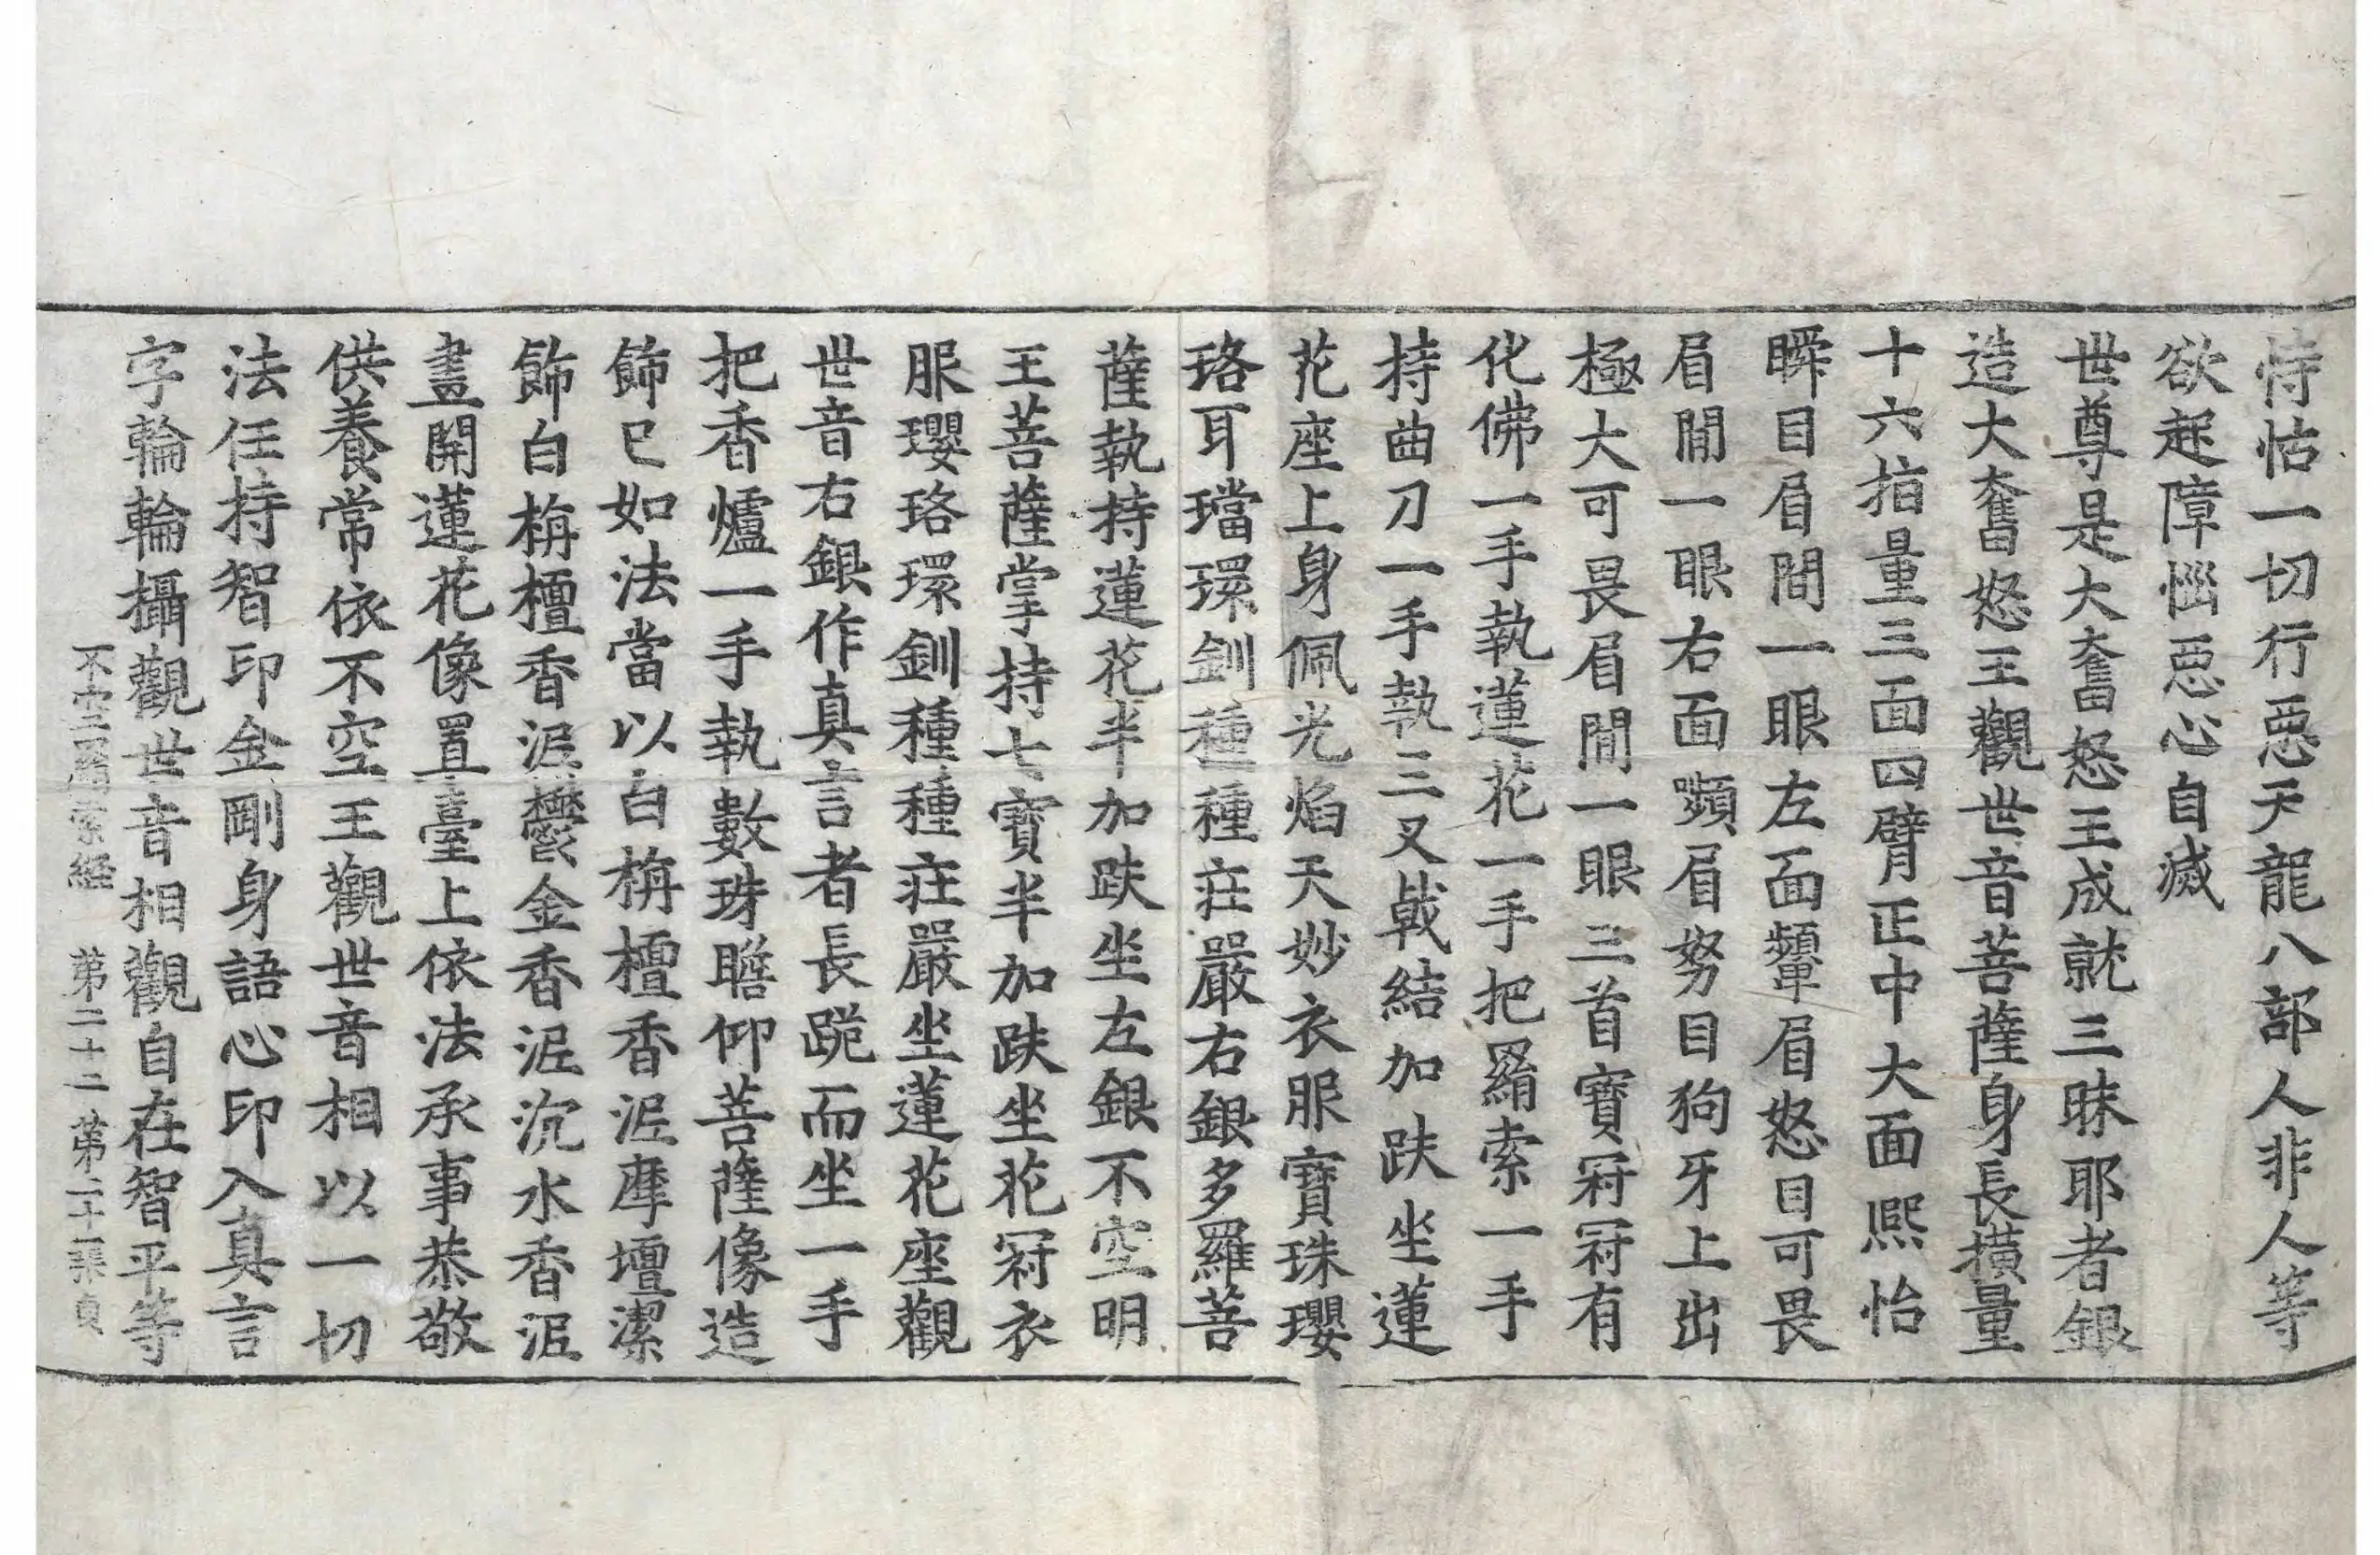 恃怙一切行惡天龍八部人非人等
欲起障惱惡心自滅
世尊是大奮怒王成就三昧耶者銀
造大奮怒王觀世音菩薩身長横量
十六指量三面四臂正中大面熙怡
瞬目眉間一眼左面顰眉怒目可畏
眉間一眼右面顰眉努目狗牙上出
極大可畏眉間一眼三首寳冠冠有
化佛一手執蓮花一手把羂索一手
持曲刀一手執三叉戟結加趺坐蓮
花座上身佩光焰天妙衣服寳珠瓔
珞耳璫環釧種種莊嚴右銀多羅菩
薩執持蓮花半加趺坐左銀不空明
王菩薩掌持七寳半加趺坐花冠衣
服瓔珞環釧種種莊嚴坐蓮花座觀
世音右銀作真言者長跪而坐一手
把香爐一手執數珠瞻仰菩薩像造
飾已如法當以白栴檀香泥摩壇潔
飾白栴檀香泥欝金香泥沉水香泥
畫開蓮花像置臺上依法承事恭敬
供養常依不空王觀世音相以一切
法任持智印金剛身語心印入真言
字輪輪攝觀世音相觀自在智平等
不空羂索経　第二十二　第二十一張　貞